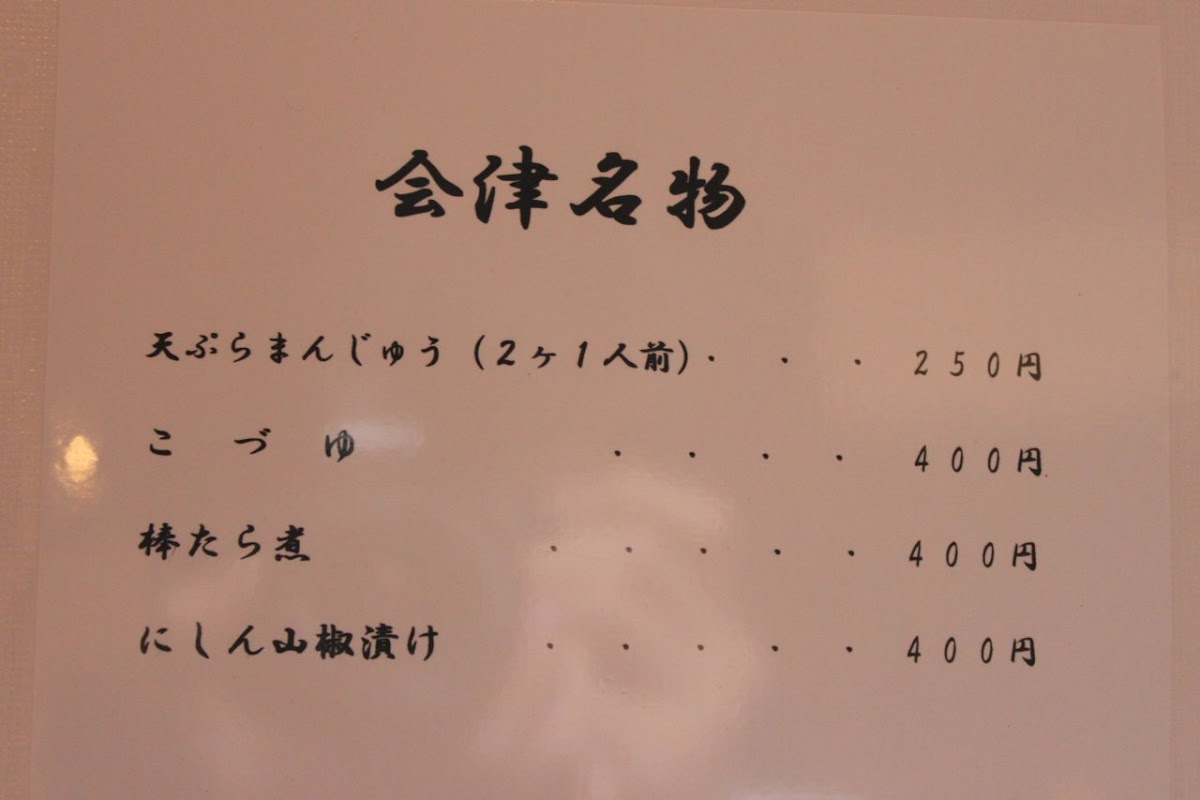 会津名物
天ぷらまんじゅう(2ヶ1人前)・・・250円
こづゆ・・・・400円
棒たら煮・・・・・400円
にしん山椒漬け・・・・・400円